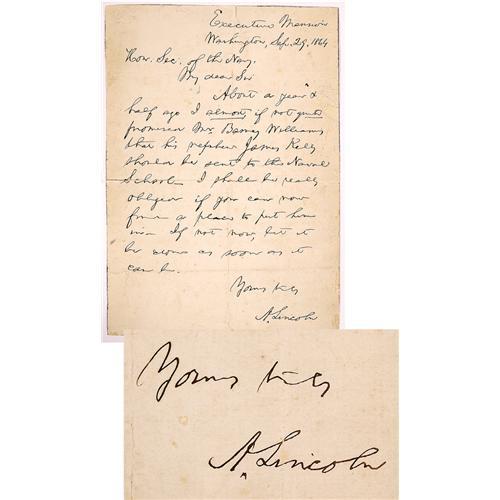 Executive Mansion
Washington, Sep. 29, 1864
Hon. Sec. of the Navy.
My dear Sir
About a year &
half ago I almost, if not quite
promised Mr. Barney Williams
that his nephew James Kelly
should be sent to the Naval
School. I shall be really
obliged if you can now
find a place to put him
in. If not now, let it
be done as soon as it
can be.
Yours truly
A. Lincoln
Yours truly
A. Lincoln